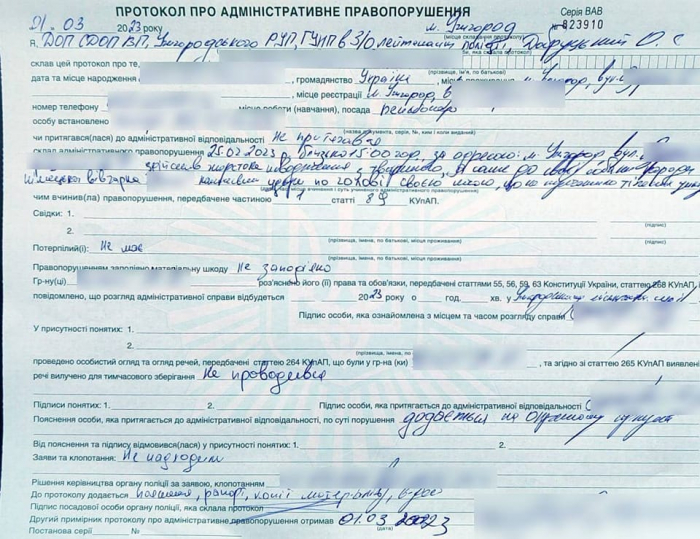 ПРОТОКОЛ ПРО АДМІНІСТРАТИВНЕ ПРАВОПОРУШЕННЯ
Серія ВАВ
01.03 2023 року м. Ужгород № 823910
(місце складання протоколу)
Я, ДОП СДОП ВП, Ужгородського РУП, ГУНП в З/О лейтенант поліції,
склав цей протокол про те,
(прізвище, ім'я, по батькові)
дата та місце народження , громадянство Україна м. Ужгород, вул.
, місце реєстрації м. Ужгород, в
номер телефону місце роботи (навчання), посада пенсіонер
особу встановлено
(назва документа, серія, №, ким і коли виданий)
чи притягався(лася) до адміністративної відповідальності Не притягався
склад адміністративного правопорушення 25.02.2023 близько 15:00 год. за адресою: м. Ужгород, вул.
здійснив жорстоке поводження з твариною, а саме до своєї собаки породи
німецька вівчарка наносив удари по голові своєю
чим вчинив(ла) правопорушення, передбачене частиною 1 статті 89 КУпАП.
Свідки: 1.
2. (підпис)
(прізвища, імена, по батькові, місця проживання) (підпис)
Потерпілий(і): Не має
(прізвище, ім'я, по батькові, місце проживання)
Правопорушенням заподіяно матеріальну шкоду Не заподіяно
Гр-ну(ці) роз'яснено його (її) права та обов'язки, передбачені статтями 55, 56, 59, 63 Конституції України, статтею 268 КУпАП
повідомлено, що розгляд адміністративної справи відбудеться 2023 року о год. хв. у
Підпис особи, яка ознайомлена з місцем та часом розгляду справи
У присутності понятих: 1.
2.
(прізвища, імена, по
проведено особистий огляд та огляд речей, передбачені статтею 264 КУпАП, що були у гр-на (ки) , та згідно зі статтею 265 КУпАП виявлені
речі вилучено для тимчасового зберігання Не проводився
Підписи понятих: 1. 2. Підпис особи, яка притягається до адміністративної відповідальності
Пояснення особи, яка притягається до адміністративної відповідальності, по суті порушення додається на окремому аркуші
Від пояснення та підпису відмовився(лася) у присутності понятих: 1. 2.
Заяви та клопотання: Не надходили
Рішення керівництва органу поліції за заявою, клопотанням
До протоколу додається пояснення, рапорт, копії матеріалів,
Підпис посадової особи органу поліції, яка склала протокол
Другий примірник протоколу про адміністративне правопорушення отримав 01.03 2023
(дата)
Постанова серії №